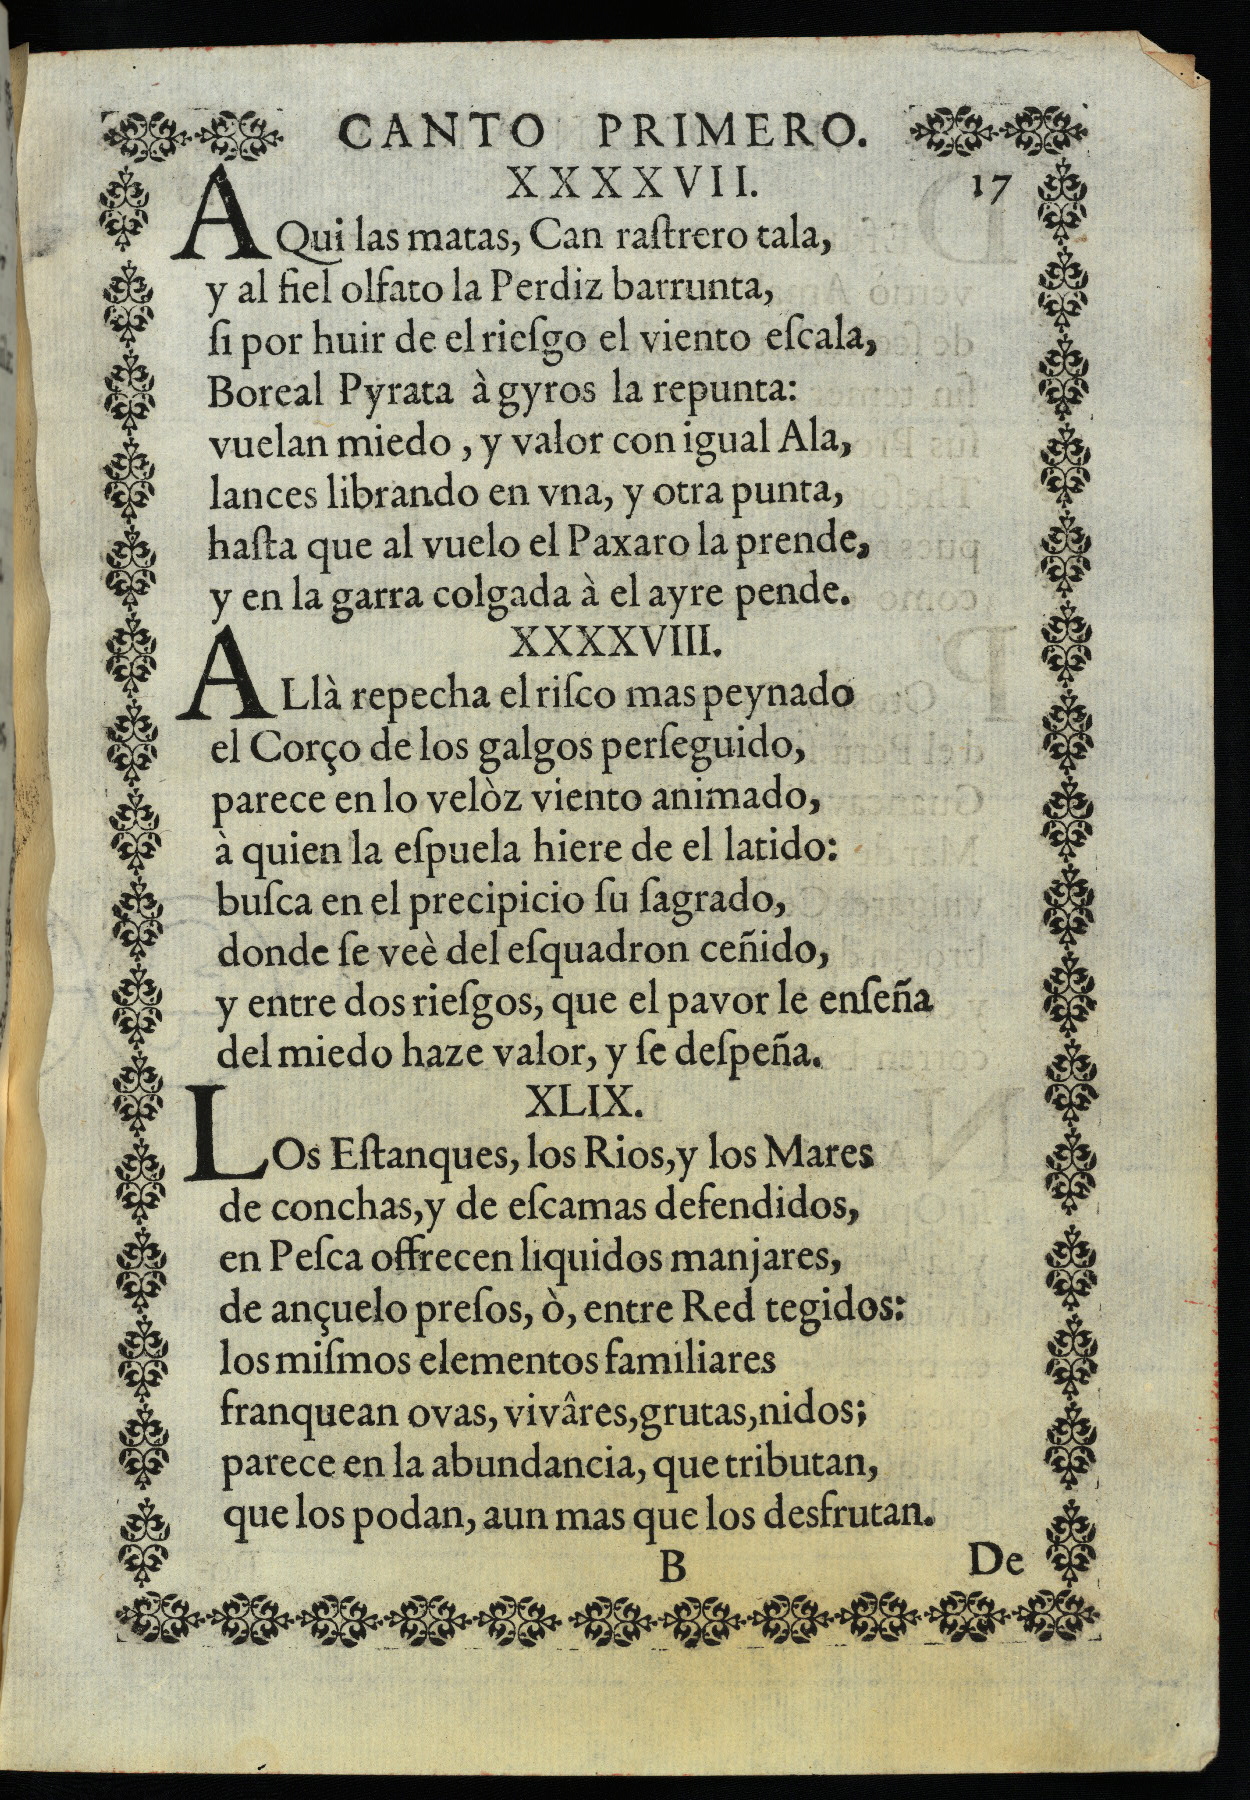 CANTO PRIMERO.
XXXXVII. 17
AQui las matas, Can raſtrero tala,
y al fiel olfato la Perdiz barrunta,
ſi por huir de el rieſgo el viento eſcala,
Boreal Pyrata à gyros la repunta:
vuelan miedo , y valor con igual Ala,
lances librando en vna, y otra punta,
haſta que al vuelo el Paxaro la prende,
y en la garra colgada à el ayre pende.
XXXXVIII.
ALlà repecha el riſco mas peynado
el Corço de los galgos perſeguido,
parece en lo velòz viento animado,
à quien la eſpuela hiere de el latido:
buſca en el precipicio ſu ſagrado,
donde ſe veè del eſquadron ceñido,
y entre dos rieſgos, que el pavor le enſeña
del miedo haze valor, y ſe deſpeña.
XLIX.
LOs Eſtanques, los Rios,y los Mares
de conchas,y de eſcamas defendidos,
en Peſca offrecen liquidos manjares,
de ançuelo preſos, ò, entre Red tegidos:
los miſmos elementos familiares
franquean ovas, vivâres,grutas,nidos;
parece en la abundancia, que tributan,
que los podan, aun mas que los desfrutan.
B De